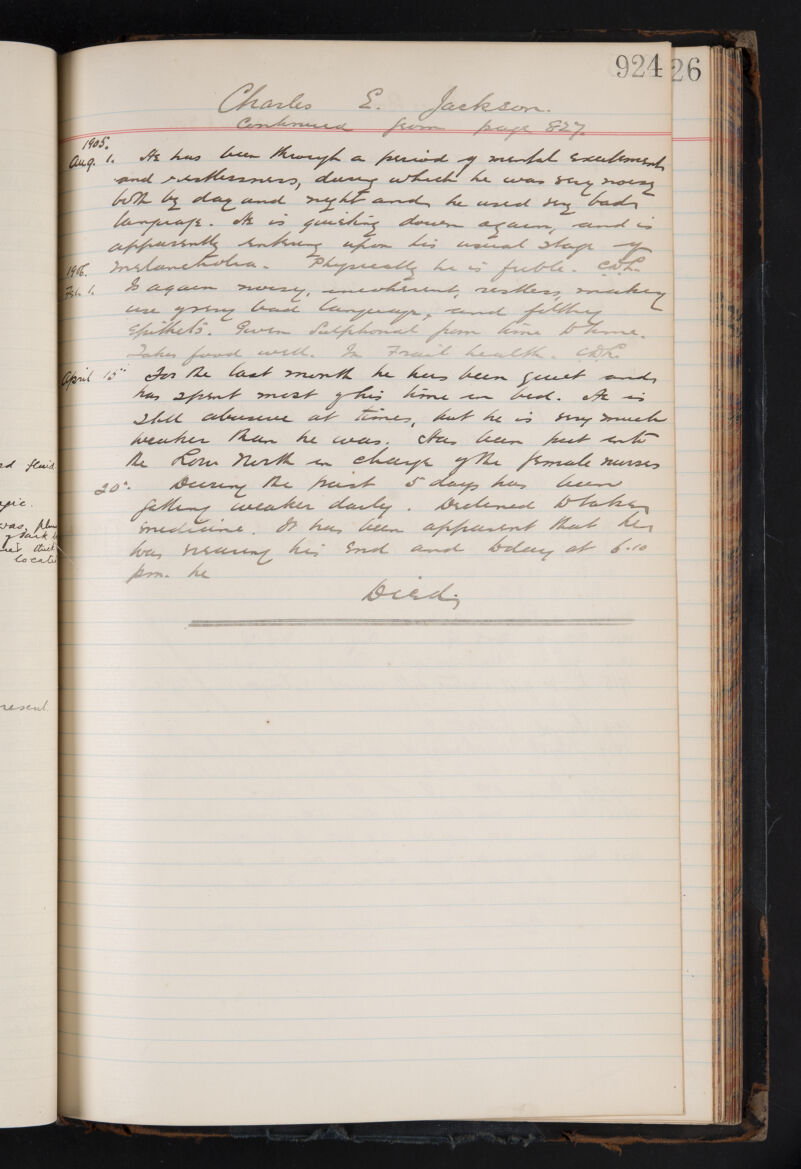 924
26
Charles E. Jackson.
Continued from page 827.
1905.
Aug. 1. He has been through a period of mental excitement
and restlessness, during which he was very noisy
both by day and night and he used very bad
language. He is quieting down again, and is
apparently entering upon his usual stage of
melancholia. Physically he is feeble. C.D.L.
1906.
Feb. 1. Is again noisy, incoherent, restless, making
use of very bad language, and filthy
epithets. Given Sulphonal from time to time.
Takes food well. In Frail health. C.D.L.
April 15th For the last month he has been quiet and
has spent most of his time in bed. He is
still abusive at times, but he is very much
weaker than he was. Has been put into
the Low North in charge of the female nurses
20th During the past 5 days has been
getting weaker daily. Declined to take
medicine. It has been apparent that he
was nearing his end and today at 6.10
pm. he
Died,
fluid
was
locate
resent